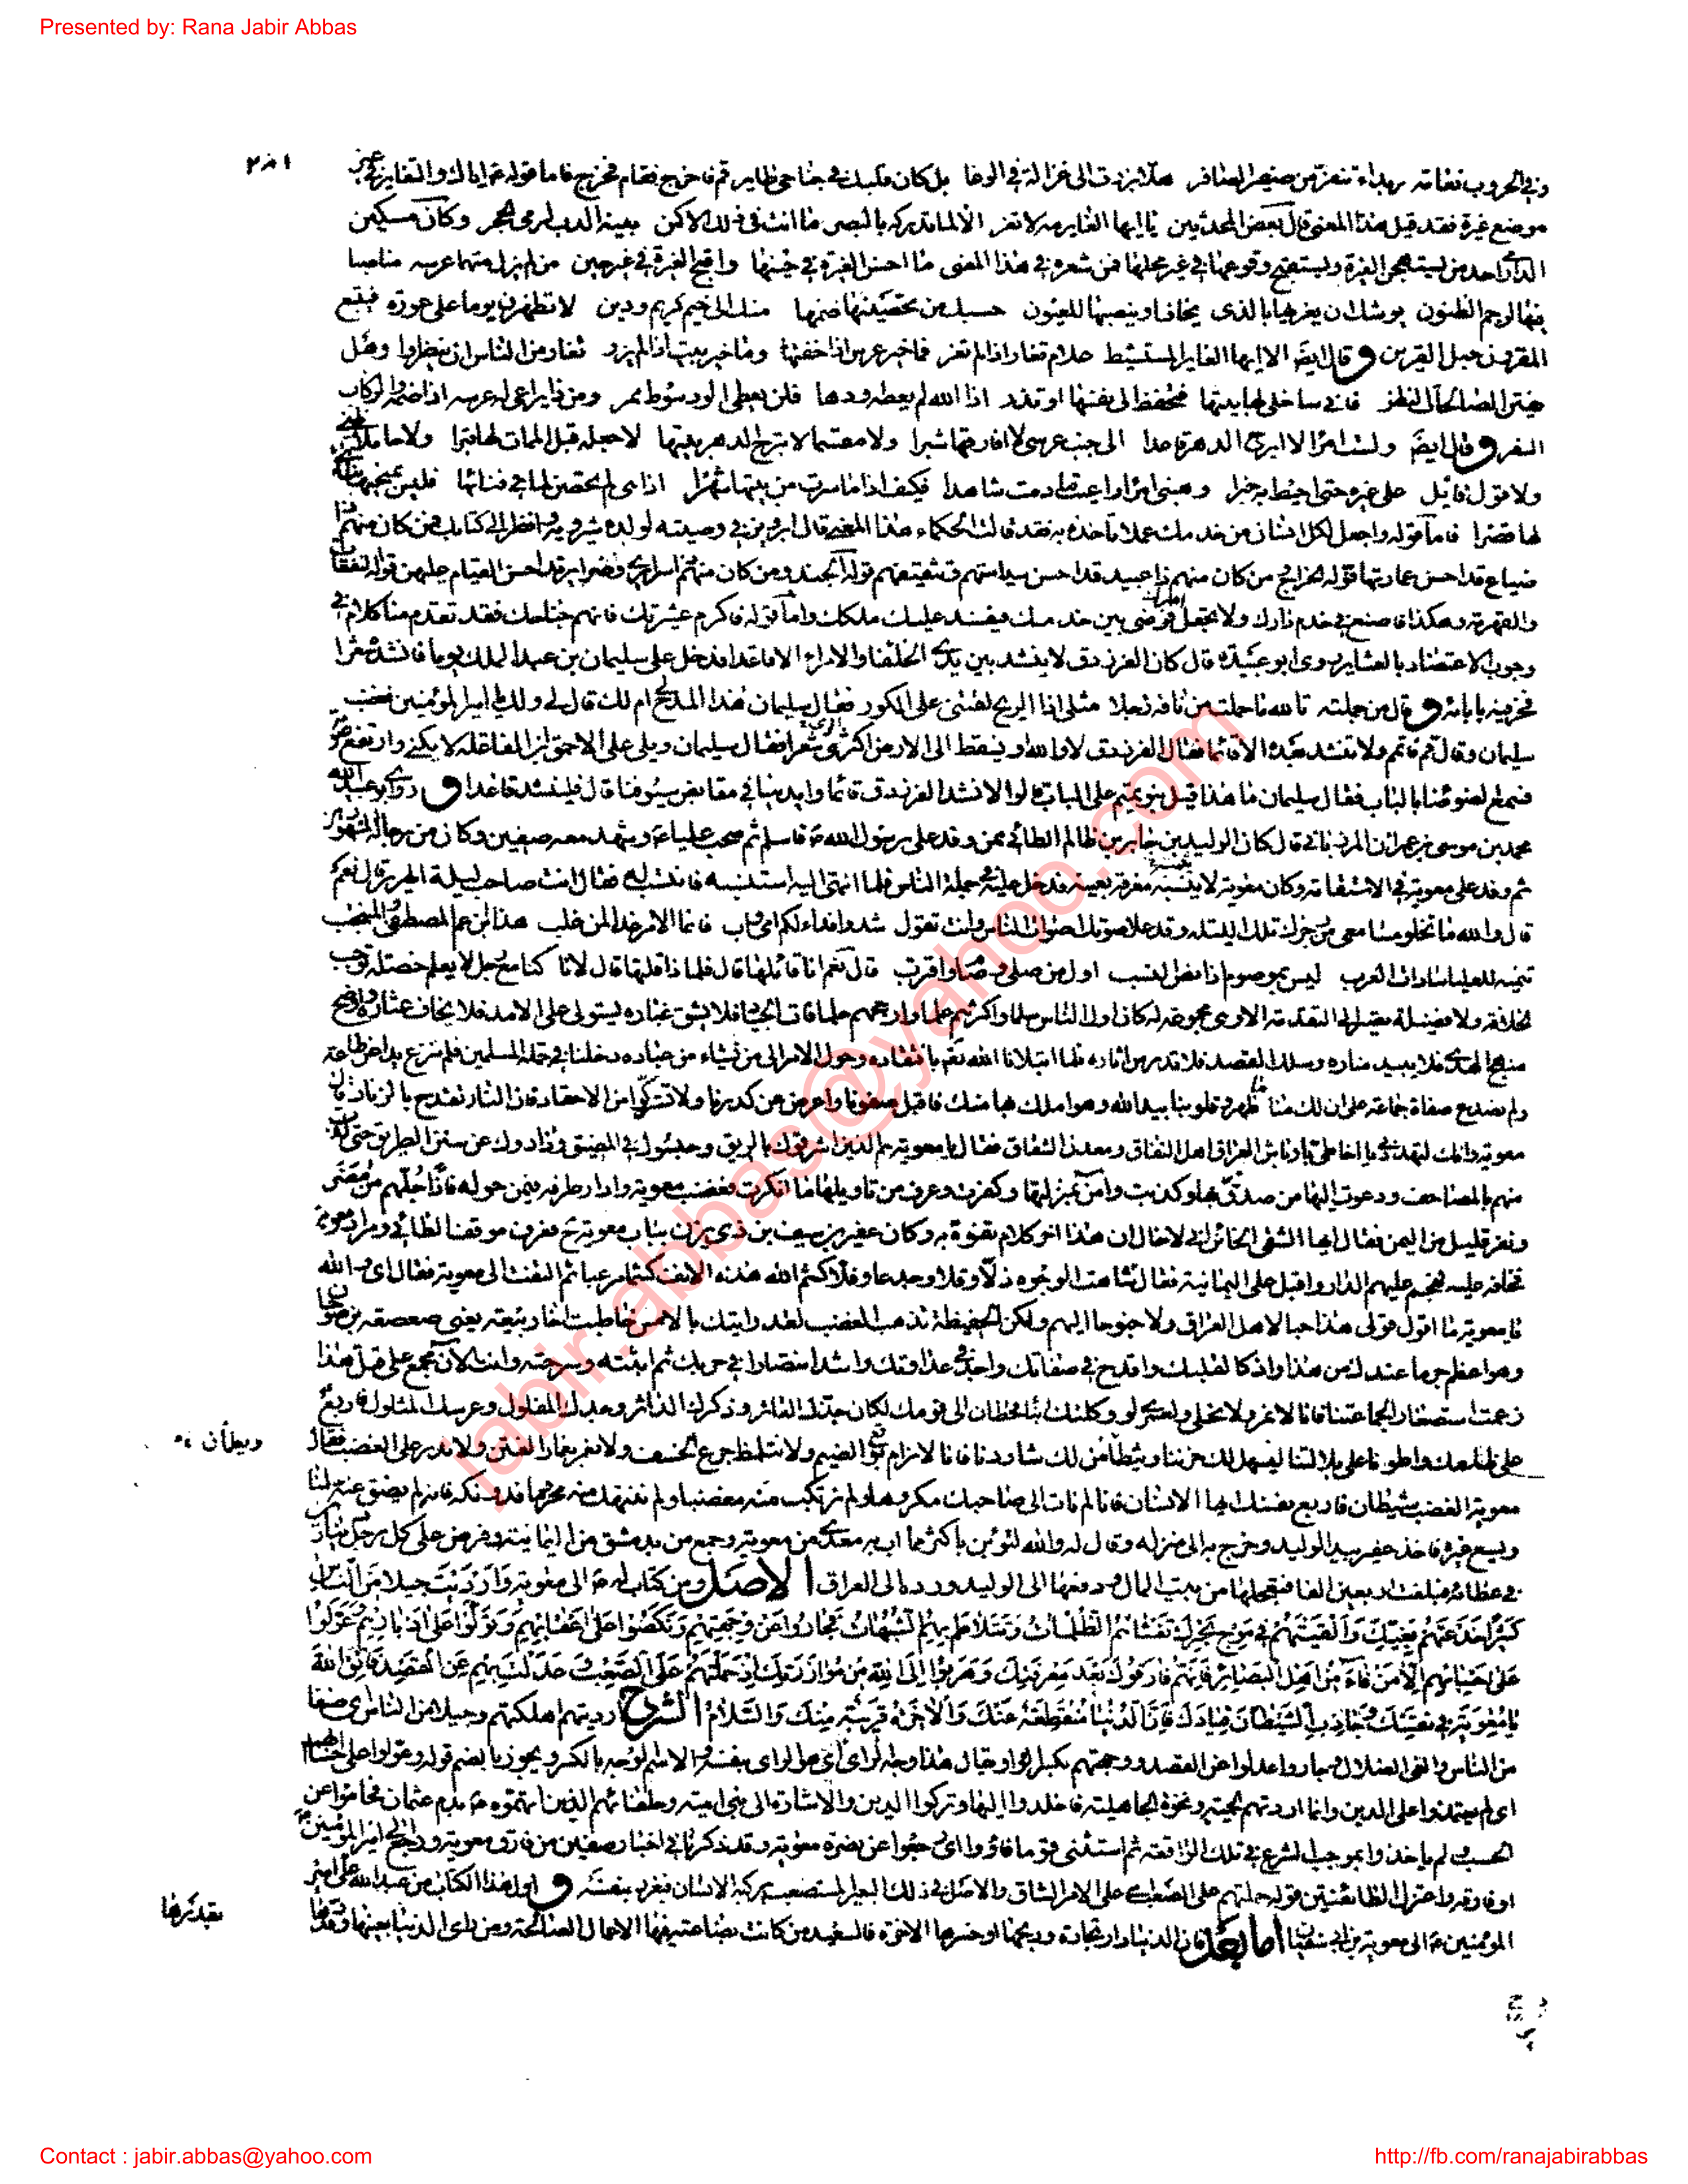 Presented by: Rana Jabir Abbas
٢٨١
وفي الحروب نعامة ربداء تنفر من صفير الصافر هلا برزت الى غزالة في الوغا بل كان قلبك في جناحي طاير قم فاخرج فقام فخرج فاما قوله ع اياك والتغاير في غير
موضع غيرة فقد قيل هذا المعنى قال بعض المحدثين يا ايها الغاير مه لا تغر الا لما تدركه بالبصر ما انت في ذلك الا كمن بيته الدب لرمي الحجر وكان مسكين
الدارمي احد من يستهجن الغيرة ويستقبح وقوعها في غير محلها فمن شعره في هذا المعنى ما احسن الغيرة في حينها واقبح الغيرة في غير حين من لم يزل متهما عرسه مناصبا
فيها لرجم الظنون يوشك ان يغريها بالذي يخاف او ينصبها للعيون حسبك من تحصينها ضمها منك الى خيم كريم ودين لا تظهرن يوما على عورة فيتبع
المقرون حبل القرين وقال ايضا الا ايها الغاير المستشيط علام تغار اذا لم تغر فما خير عرس اذا خفتها وما خير بيت اذا لم يزر تغار من الناس ان ينظروا وهل
يفتن الصالحات النظر فاني ساخلي لها بيتها فتحفظ لي نفسها او تذر اذا الله لم يعطه ودها فلن يعطي الود سوط ممر ومن ذا يراعي له عرسه اذا ضمه والركاب
السفر وقال ايضا ولست امرءا لا ابرح الدهر قاعدا الى جنب عرسي لا افارقها شبرا ولا مقسما لا ابرح الدهر بيتها لاجعله قبل الممات لها قبرا ولا حاملا ظني
ولا قول قائل على غيره حتى احيط به خبرا وهبني امرءا راعيت ما دمت شاهدا فكيف اذا ما سرت من بيتها شهرا اذا هي لم تحصن لما في فنائها فليس بمنجيها بنائي
لها قصرا فاما قوله واجعل لكل انسان من خدمك عملا تاخذه به فقد قالت الحكماء هذا المعنى قال ابرويز في وصيته لولده شيرويه وانظر الى كتابك فمن كان منهم ذا
ضياع قد احسن عمارتها فوله الخراج ومن كان منهم ذا عبيد قد احسن سياستهم وتثقيفهم فوله الجند ومن كان منهم ذا سراري وضراير قد احسن القيام عليهن فوله النفقات
والقهرمة وهكذا فاصنع في خدم دارك ولا تجعل امرك فوضى بين خدمك فيفسد عليك ملكك واما قوله فاكرم عشيرتك فانهم جناحك فقد تقدم منا كلام في
وجوب الاعتضاد بالعشاير روى ابو عبيدة قال كان الفرزدق لا ينشد بين يدي الخلفاء والامراء الا قاعدا فدخل على سليمان بن عبد الملك يوما فانشده شعرا
فخر فيه بابائه وقال من جملته تالله ما حملت من ناقة رجلا مثلي اذا الريح لفتني على الكور فقال سليمان هذا المدح لي ام لك قال لي ولك يا امير المؤمنين فغضب
سليمان وقال قم فاتم ولا تنشد بعده الا قائما فقال الفرزدق لا والله او يسقط الى الارض اكثري شعرا فقال سليمان ويلي على الاحمق ابن الفاعلة لا يكني وارتفع صوته
فسمع الضوضاء بالباب فقال سليمان ما هذا قيل بنو تميم على الباب قالوا لا ينشد الفرزدق قائما وايدينا في مقابض سيوفنا قال فلينشد قاعدا وروى ابو عبيد الله
محمد بن موسى بن عمران المرزباني قال كان الوليد بن جابر بن ظالم الطائي ممن وفد على رسول الله ص فاسلم ثم صحب عليا ع وشهد معه صفين وكان من رجاله المشهورين
ثم وفد على معوية في الاستقامة وكان معوية لا يثبته معرفة بعينه فدخل عليه في جملة الناس فلما انتهى اليه استنسبه فانتسب له فقال انت صاحب ليلة الهرير قال نعم
قال والله ما تخلو مسامعي من رجزك تلك الليلة وقد علا صوتك اصوات الناس وانت تقول شدوا فداء لكم امي واب فانما الامر غدا لمن غلب هذا ابن عم المصطفى والمنتجب
تنميه للعلياء سادات العرب ليس بموصوم اذا نص النسب اول من صلى وصام واقترب قال نعم انا قائلها قال فلماذا قلتها قال لانا كنا مع رجل لا يعلم خصلة توجب
الخلافة ولا فضيلة تصير الى التقدمة الا وهي مجموعة له كان اول الناس سلما واكثرهم علما وارجحهم حلما فات الجياد فلا يشق غباره يستولي على الامد فلا يخاف عثاره واوضح
منهج الهدى فلا يبيد مناره وسلك القصد فلا تدرس اثاره فلما ابتلانا الله تعالى بافتقاده وحول الامر الى من يشاء من عباده دخلنا في جملة المسلمين فلم ننزع يدا عن طاعة
ولم نصدع صفاة جماعة على ان لك منا ما ظهر وقلوبنا بيد الله وهو املك بها منك فاقبل صفونا واعرض عن كدرنا ولا تثر كوامن الاحقاد فان النار تقدح بالزناد قال
معوية وانك لتهددني يا اخا طي باوباش العراق اهل النفاق ومعدن الشقاق فقال يا معوية هم الذين اشرقوك بالريق وحبسوك في المضيق وذادوك عن سنن الطريق حتى لذت
منهم بالمصاحف ودعوت اليها من صدق بها وكذبت وآمن بمنزلها وكفرت وعرف من تاويلها ما انكرت فغضب معوية وادار طرفه فيمن حوله فاذا جلهم من مضر
ونفر قليل من اليمن فقال ايها الشقي الخائن اني لاخال ان هذا اخر كلام تفوه به وكان عفير بن سيف بن ذي يزن بباب معوية ح فعرف موقف الطائي ومراد معوية
فخافه عليه فهجم عليهم الدار واقبل على اليمانية فقال شاهت الوجوه ذلا وقلا وجدعا وفلا كشم الله هذه الانف كشما مرعبا ثم التفت الى معوية فقال اي والله
يا معوية ما اقول قولي هذا حبا لاهل العراق ولا جنوحا اليهم ولكن الحفيظة تذهب الغضب لقد رايتك بالامس خاطبت اخا ربيعة يعني صعصعة بن صوحان
وهو اعظم جرما عندك من هذا وانكا لقلبك واقدح في صفاتك واجد في عداوتك واشد انتصارا في حربك ثم اثبته وسرحته وانت الان مجمع على قتل هذا
زعمت استصغارا لجماعتنا فانا لا نمر ولا نحلي ولعمري لو وكلتك ابناء قحطان الى قومك لكان جدك العاثر وذكرك الداثر وحدك المفلول وعرشك المثلول فاربع
على ظلعك واطونا على بلالتنا ليسهل لك حزننا ويتطامن لك شاردنا فانا لا نرام بوقع الضيم ولا نتلمظ جرع الخسف ولا نغمز بغماز الفتن ولا ندر على الغضب فقال
ويطأن
معوية الغضب شيطان فاربع نفسك ايها الانسان فانا لم نات الى صاحبك مكروها ولم نرتكب منه مغضبا ولم ننتهك منه محرما فدونكه فانه لم يضق عنه حلمنا
ويسع غيره فاخذ عفير بيد الوليد وخرج به الى منزله وقال له والله لتؤبن باكثر مما آب به معدي من معوية وجمع من بدمشق من اليمانية وفرض على كل رجل دينارين
في عطائه فبلغت اربعين الفا فتعجلها من بيت المال ودفعها الى الوليد ورده الى العراق الاصل ومن كتاب له ع الى معوية وَأَرْدَيْتَ جِيلًا مِنَ النَّاسِ
كَثِيرًا خَدَعْتَهُمْ بِغَيِّكَ وَأَلْقَيْتَهُمْ فِي مَوْجِ بَحْرِكَ تَغْشَاهُمُ الظُّلُمَاتُ وَتَتَلَاطَمُ بِهِمُ الشُّبُهَاتُ فَجَارُوا عَنْ وِجْهَتِهِمْ وَنَكَصُوا عَلَى أَعْقَابِهِمْ وَتَوَلَّوْا عَلَى أَدْبَارِهِمْ وَعَوَّلُوا
عَلَى أَحْسَابِهِمْ إِلَّا مَنْ فَاءَ مِنْ أَهْلِ الْبَصَائِرِ فَإِنَّهُمْ فَارَقُوكَ بَعْدَ مَعْرِفَتِكَ وَهَرَبُوا إِلَى اللهِ مِنْ مُوَازَرَتِكَ إِذْ حَمَلْتَهُمْ عَلَى الصَّعْبِ وَعَدَلْتَ بِهِمْ عَنِ الْقَصْدِ فَاتَّقِ اللهَ
يَا مُعَوِيَةُ فِي نَفْسِكَ وَجَاذِبِ الشَّيْطَانَ قِيَادَكَ فَإِنَّ الدُّنْيَا مُنْقَطِعَةٌ عَنْكَ وَالْآخِرَةَ قَرِيبَةٌ مِنْكَ وَالسَّلَامُ الشرح ارديتهم اهلكتهم وجيلا من الناس اي صنفا
من الناس والغي الضلال وجاروا عدلوا عن القصد ووجهتهم بكسر الواو يقال هذا وجه الراي اي هو الراي بنفسه والاسم الوجه بالكسر ويجوز بالضم قوله وعولوا على احسابهم
اي لم يعتمدوا على الدين وانما اردتهم الحمية ونخوة الجاهلية فاخلدوا اليها وتركوا الدين والاشارة الى بني امية وحلفائهم الذين اتهموه ع بدم عثمان فحاموا عن
الحسب ولم ياخذوا بموجب الشرع في تلك الواقعة ثم استثنى قوما فاؤوا اي رجعوا عن نصرة معوية وقد ذكرنا في اخبار صفين من فارق معوية ورجع الى امير المؤمنين ع
او فارقه واعتزل الطائفتين قوله حملتهم على الصعب اي على الامر الشاق والاصل في ذلك البعير المستصعب يركبه الانسان فيغرر بنفسه واول هذا الكتاب من عبد الله علي امير
المؤمنين ع الى معوية بن ابي سفيان اما بعد فان الدنيا دار تجارة وربحها او خسرها الاخرة فالسعيد من كانت بضاعته فيها الاعمال الصالحة ومن راى الدنيا بعينها وقدرها
بقدرها
jabir.abbas@yahoo.com
Contact : jabir.abbas@yahoo.com
http://fb.com/ranajabirabbas